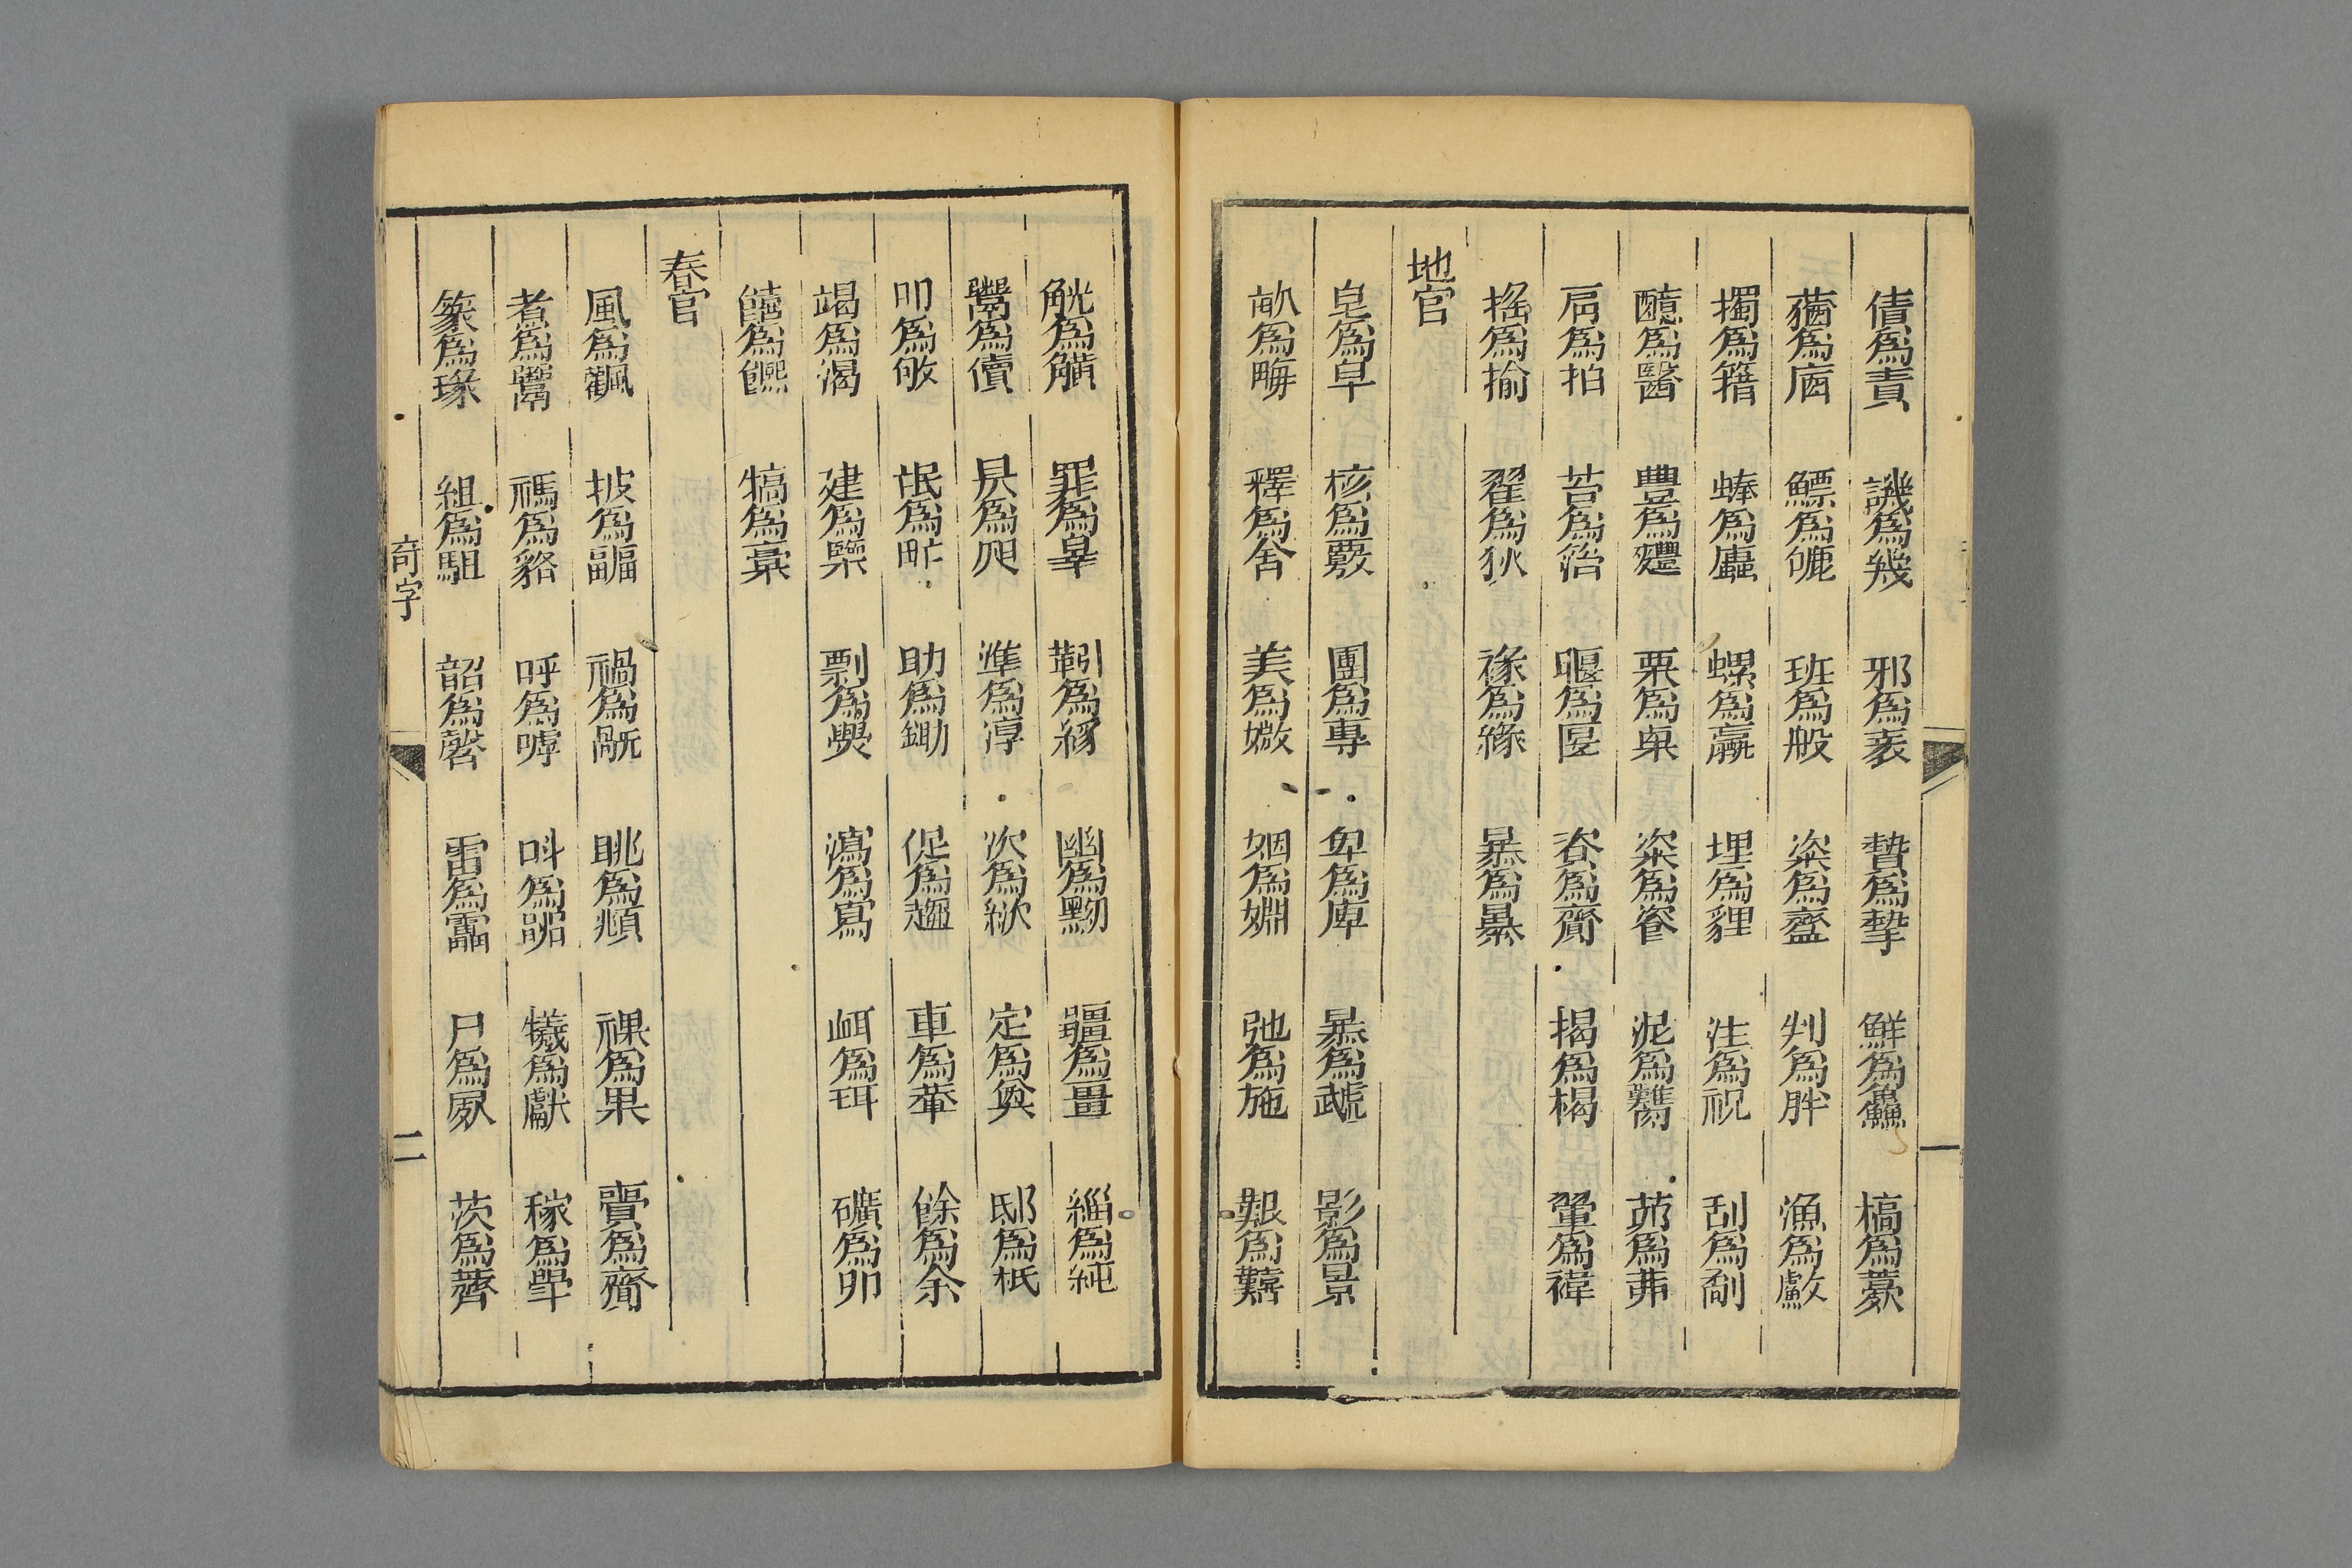 債爲責 譏爲幾 邪爲衺 贄爲摯 鮮爲鱻 槁爲薧
蕕爲庮 鰾爲皫 班爲般 粢爲齍 判爲胖 漁爲䱷
擉爲籍 蜯爲蠯 螺爲蠃 埋爲貍 注爲祝 刮爲劀
醷爲醫 豊爲麷 栗爲㮚 粢爲 泥爲臡 茆爲茀
肩爲拍 苔爲箈 匽爲 咨爲齎 揭爲楬 翬爲褘
搖爲揄 翟爲狄 褖爲緣 暴爲暴
地官
皂爲皁 核爲覈 團爲專 卑爲庳 暴爲虣 影爲景
畝爲畮 釋爲舍 美爲媺 姻爲婣 弛爲施 艱爲囏
觥爲觵 罪爲辠 靷爲絼 幽爲黝 疆爲畺 緇爲純
鬻爲儥 昃爲 準爲淳 次爲 定爲奠 邸爲柢
叩爲敂 氓爲甿 助爲鋤 促爲趨 車爲輂 餘爲余
竭爲渴 建爲 剽爲㶾 瀉爲寫 衈爲珥 礦爲卝
饎爲 犒爲槀
春官
風爲飌 披爲疈 禍爲 眺爲頫 祼爲果 賫爲齎
煮爲鬻 禡爲貉 呼爲嘑 叫爲 犧爲獻 稼爲斝
篆爲瑑 組爲駔 韶爲磬 雷爲靁 尸爲 茨爲薺
奇字 二